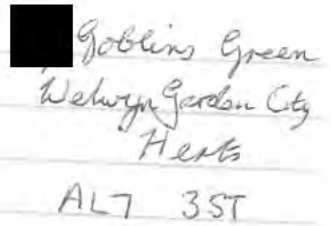 Goblins Green
Welwyn Garden City
Herts
AL7 3ST